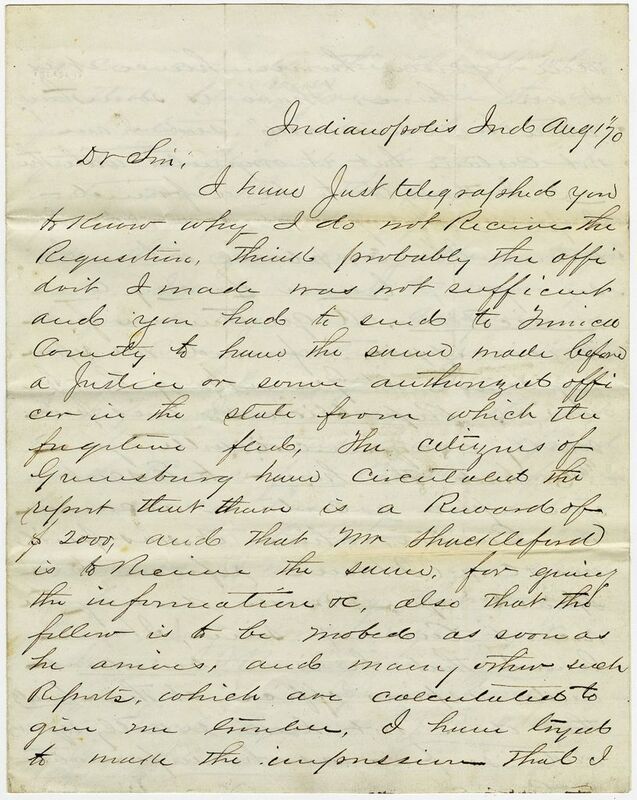 Indianopolis Ind Aug 1st 70
Dr Sir,
I have Just telegraphed you
to Know why I do not Receive the
Requsition, think probably the affi
davit I made was not sufficient
and you had to send to Tunica
County to have the same made before
a Justice or some authorized offi
cer in the state from which the
fugitive fled, The citizens of
Greensburg have circulated the
report that thare is a Reward of
$2000, and that Mr Shackleford
is to Receive the same, for giving
the information &c, also that the
fellow is to be mobed as soon as
he arrives, and many other such
Reports, which are calculated to
give me trouble, I have tryed
to make the impression that I